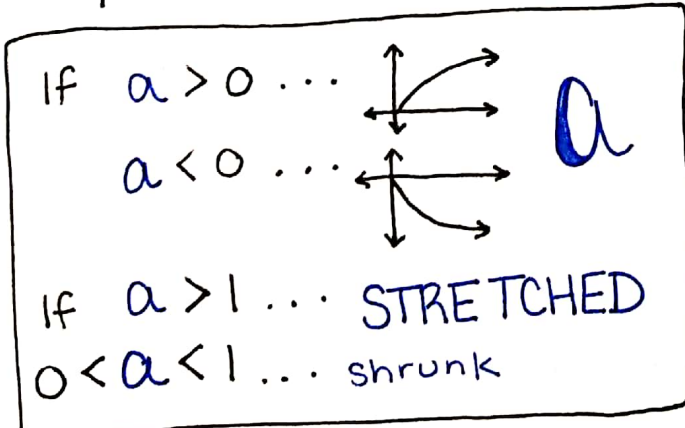 If a > 0 ...
a
a < 0 ...
If a > 1 ... STRETCHED
0 < a < 1 ... shrunk